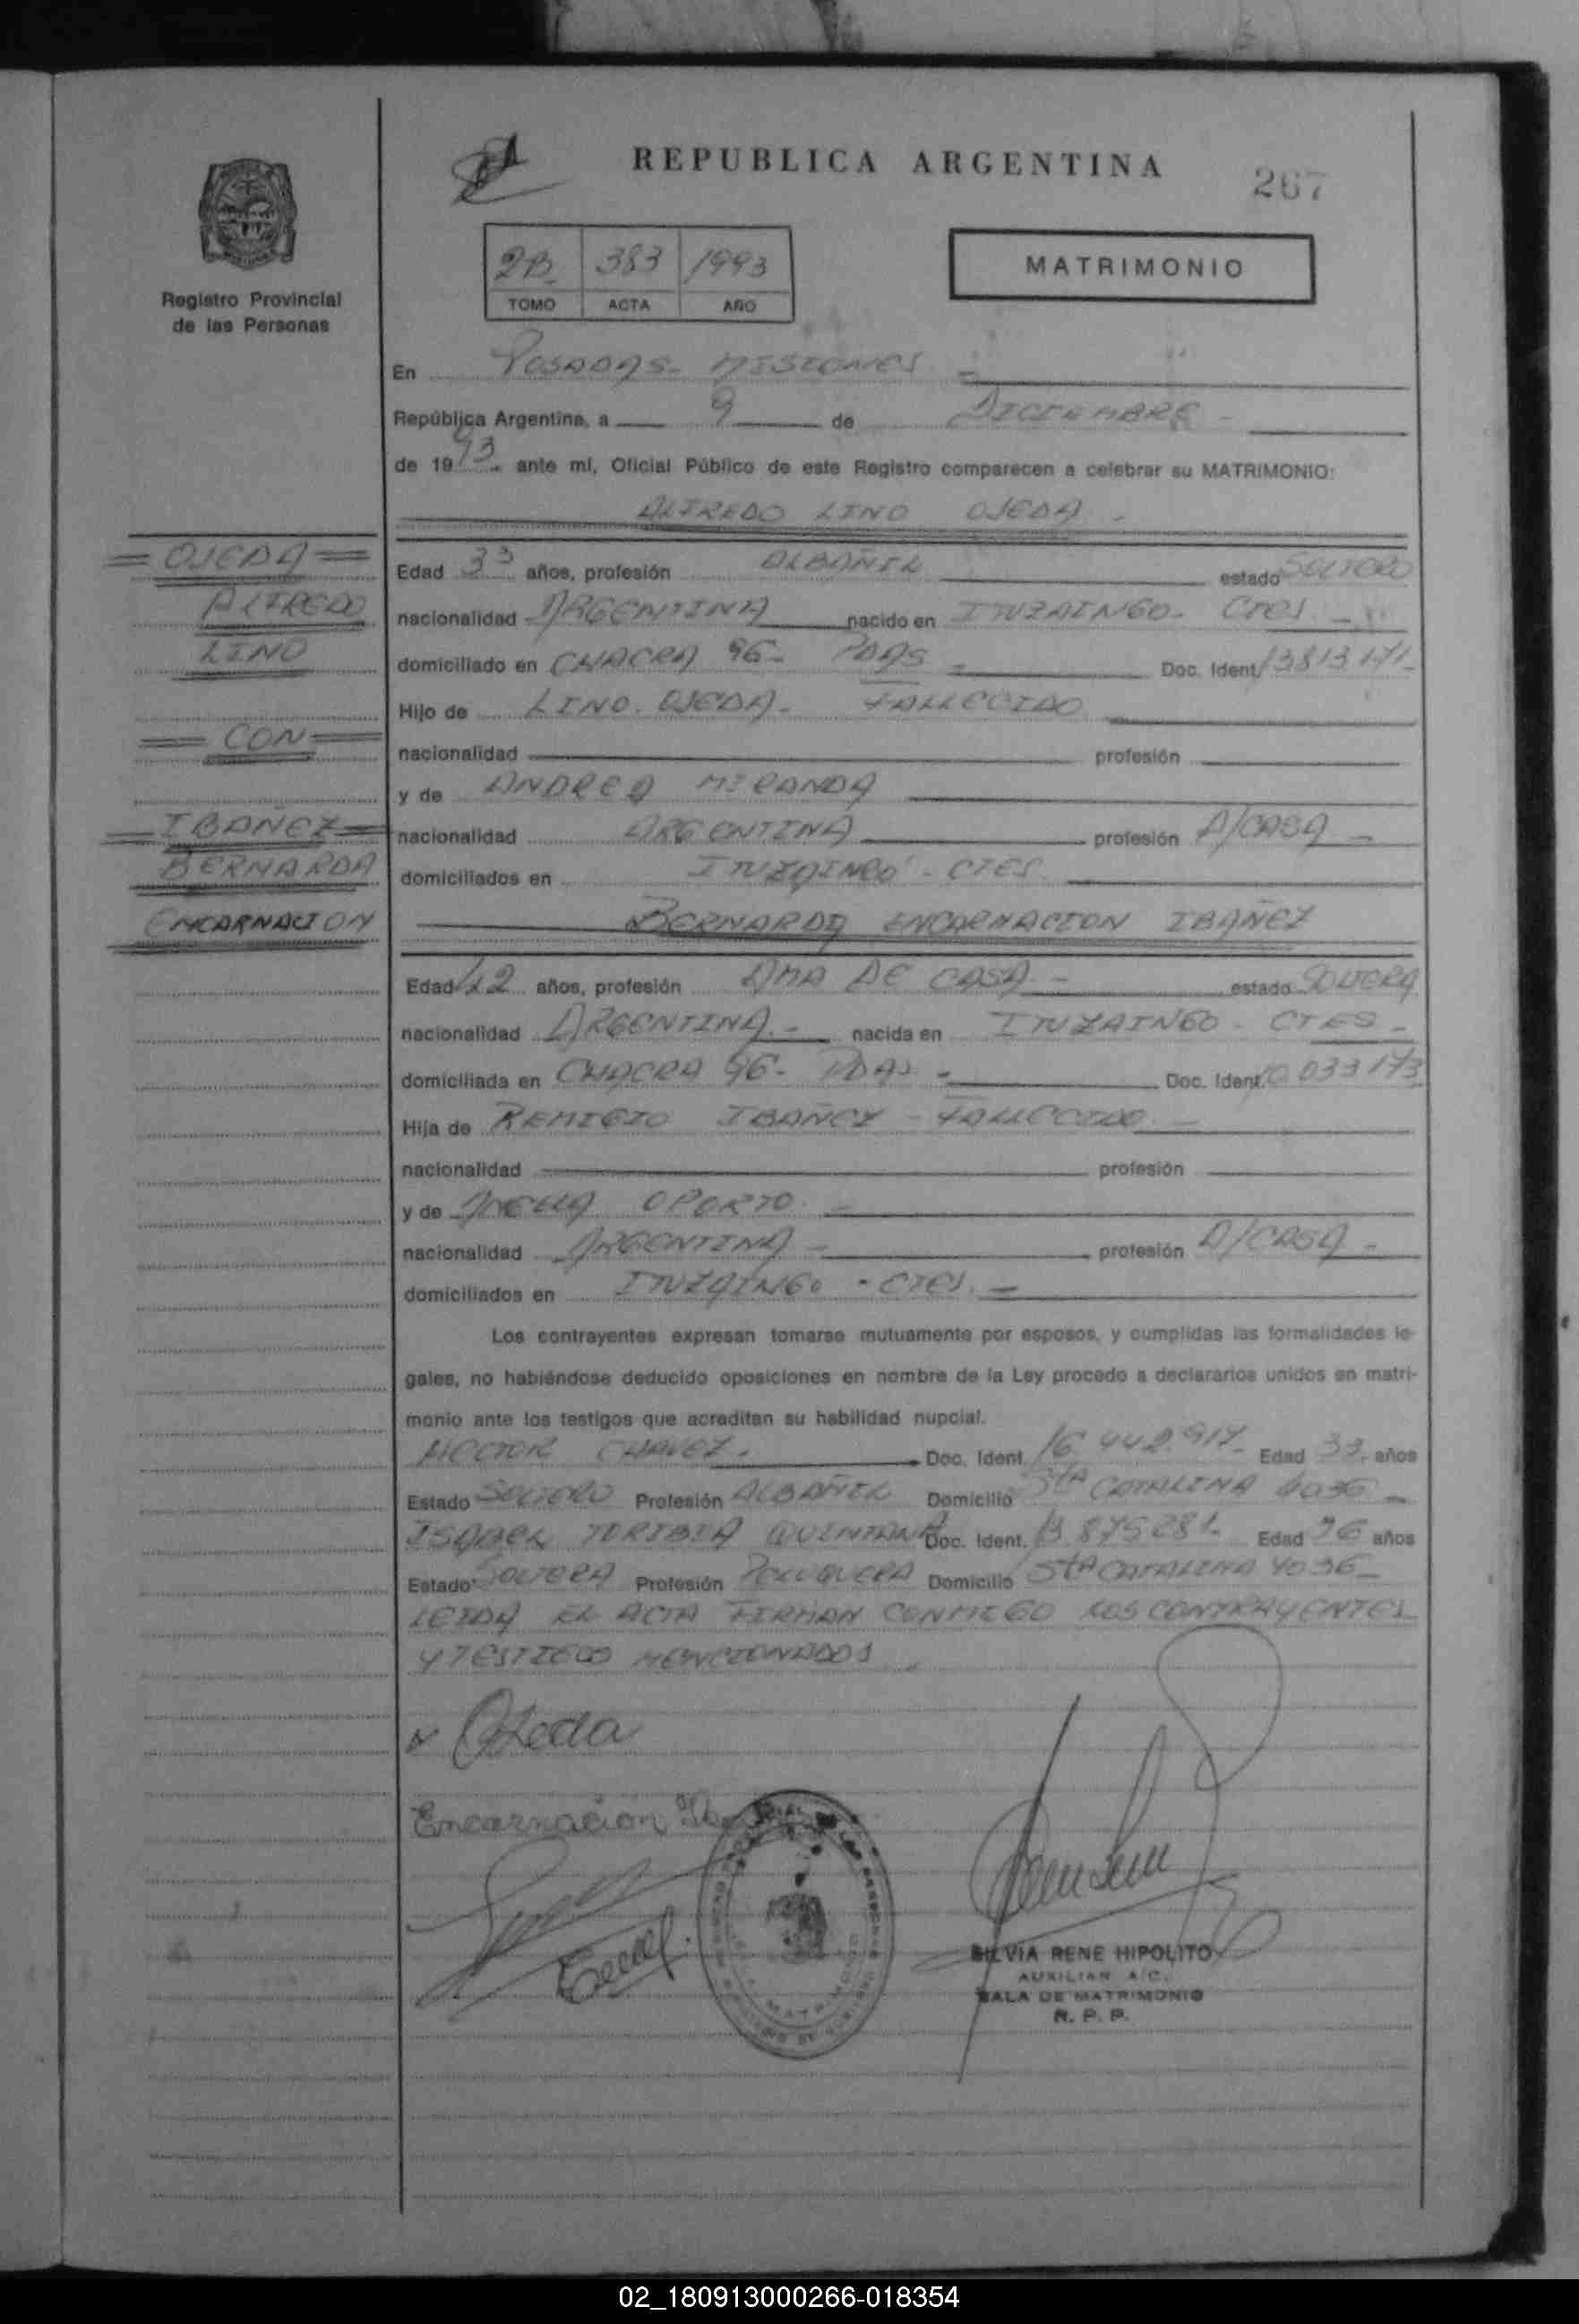 REPUBLICA ARGENTINA
267
2B 383 1993
TOMO ACTA AÑO
MATRIMONIO
Registro Provincial
de las Personas
En POSADAS - MISIONES
República Argentina, a 9 de DICIEMBRE -
de 1993 ante mí, Oficial Público de este Registro comparecen a celebrar su MATRIMONIO:
ALFREDO LINO OJEDA -
= OJEDA =
ALFREDO
LINO
= CON =
= IBAÑEZ =
BERNARDA
ENCARNACION
Edad 33 años, profesión ALBAÑIL estado SOLTERO
nacionalidad ARGENTINA nacido en ITUZAINGO - CTES -
domiciliado en CHACRA 96 - PDAS - Doc. Ident. 13813171-
Hijo de LINO OJEDA - FALLECIDO
nacionalidad profesión
y de ANDREA MIRANDA
nacionalidad ARGENTINA profesión A/CASA -
domiciliados en ITUZAINGO - CTES
BERNARDA ENCARNACION IBAÑEZ
Edad 42 años, profesión AMA DE CASA - estado SOLTERA
nacionalidad ARGENTINA - nacida en ITUZAINGO - CTES -
domiciliada en CHACRA 96 - PDAS - Doc. Ident. 033173
Hija de REMIGIO IBAÑEZ - FALLECIDO -
nacionalidad profesión
y de OPORTO -
nacionalidad ARGENTINA - profesión A/CASA -
domiciliados en ITUZAINGO - CTES -
Los contrayentes expresan tomarse mutuamente por esposos, y cumplidas las formalidades le-
gales, no habiéndose deducido oposiciones en nombre de la Ley procedo a declararlos unidos en matri-
monio ante los testigos que acreditan su habilidad nupcial.
HECTOR CHAVEZ - Doc. Ident. 16.442.917- Edad 33 años
Estado SOLTERO Profesión ALBAÑIL Domicilio Sta CATALINA 4036 -
ISABEL TORIBIA QUINTANA Doc. Ident. Edad años
Estado SOLTERA Profesión PELUQUERA Domicilio Sta CATALINA 4036 -
LEIDA EL ACTA FIRMAN CONMIGO LOS CONTRAYENTES
Y TESTIGOS MENCIONADOS
Ojeda
Encarnación
SILVIA RENE HIPOLITO
AUXILIAR A/C.
SALA DE MATRIMONIO
R. P. P.
02_180913000266-018354